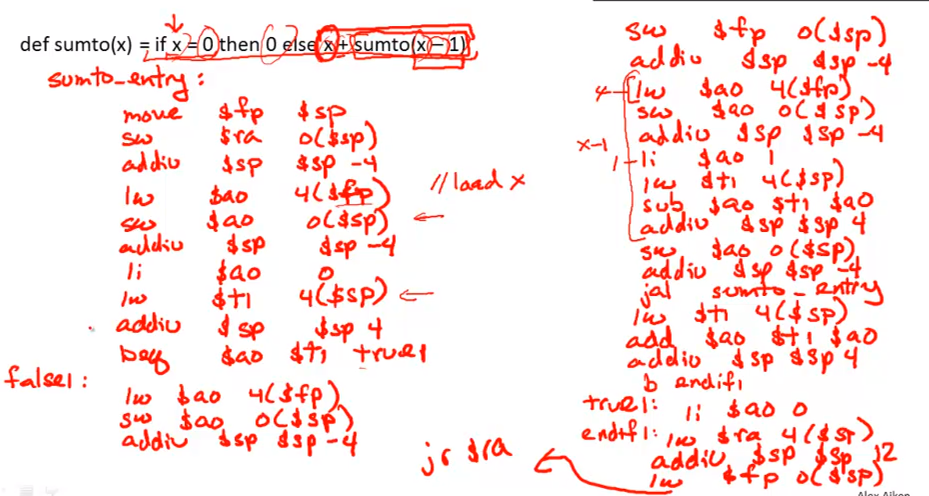 def sumto(x) = if x = 0 then 0 else x + sumto(x – 1)
sumto_entry:
move $fp $sp
sw $ra 0($sp)
addiu $sp $sp -4
lw $a0 4($fp) //load x
sw $a0 0($sp)
addiu $sp $sp -4
li $a0 0
lw $t1 4($sp)
addiu $sp $sp 4
beq $a0 $t1 true1
false1:
lw $a0 4($fp)
sw $a0 0($sp)
addiu $sp $sp -4
sw $fp 0($sp)
addiu $sp $sp -4
lw $a0 4($fp)
sw $a0 0($sp)
addiu $sp $sp -4
x-1
li $a0 1
lw $t1 4($sp)
sub $a0 $t1 $a0
addiu $sp $sp 4
sw $a0 0($sp)
addiu $sp $sp -4
jal sumto_entry
lw $t1 4($sp)
add $a0 $t1 $a0
addiu $sp $sp 4
b endif1
true1: li $a0 0
endif1: lw $ra 4($sp)
addiu $sp $sp 12
lw $fp 0($sp)
jr $ra
Alex Aiken